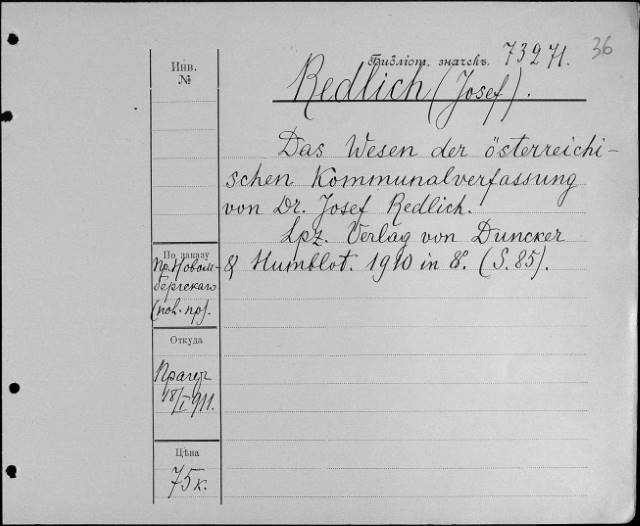 Библіот. значекъ. 73271. 36
Инв.
№
Redlich (Josef).
Das Wesen der österreichi-
schen Kommunalverfassung
von Dr. Josef Redlich.
Lpz. Verlag von Duncker
& Humblot. 1910 in 8°. (S. 85).
По заказу
Пр. Новом-
бергскаго
(пов. пр).
Откуда
Прагеръ
18/I 911.
Цѣна
75 к.